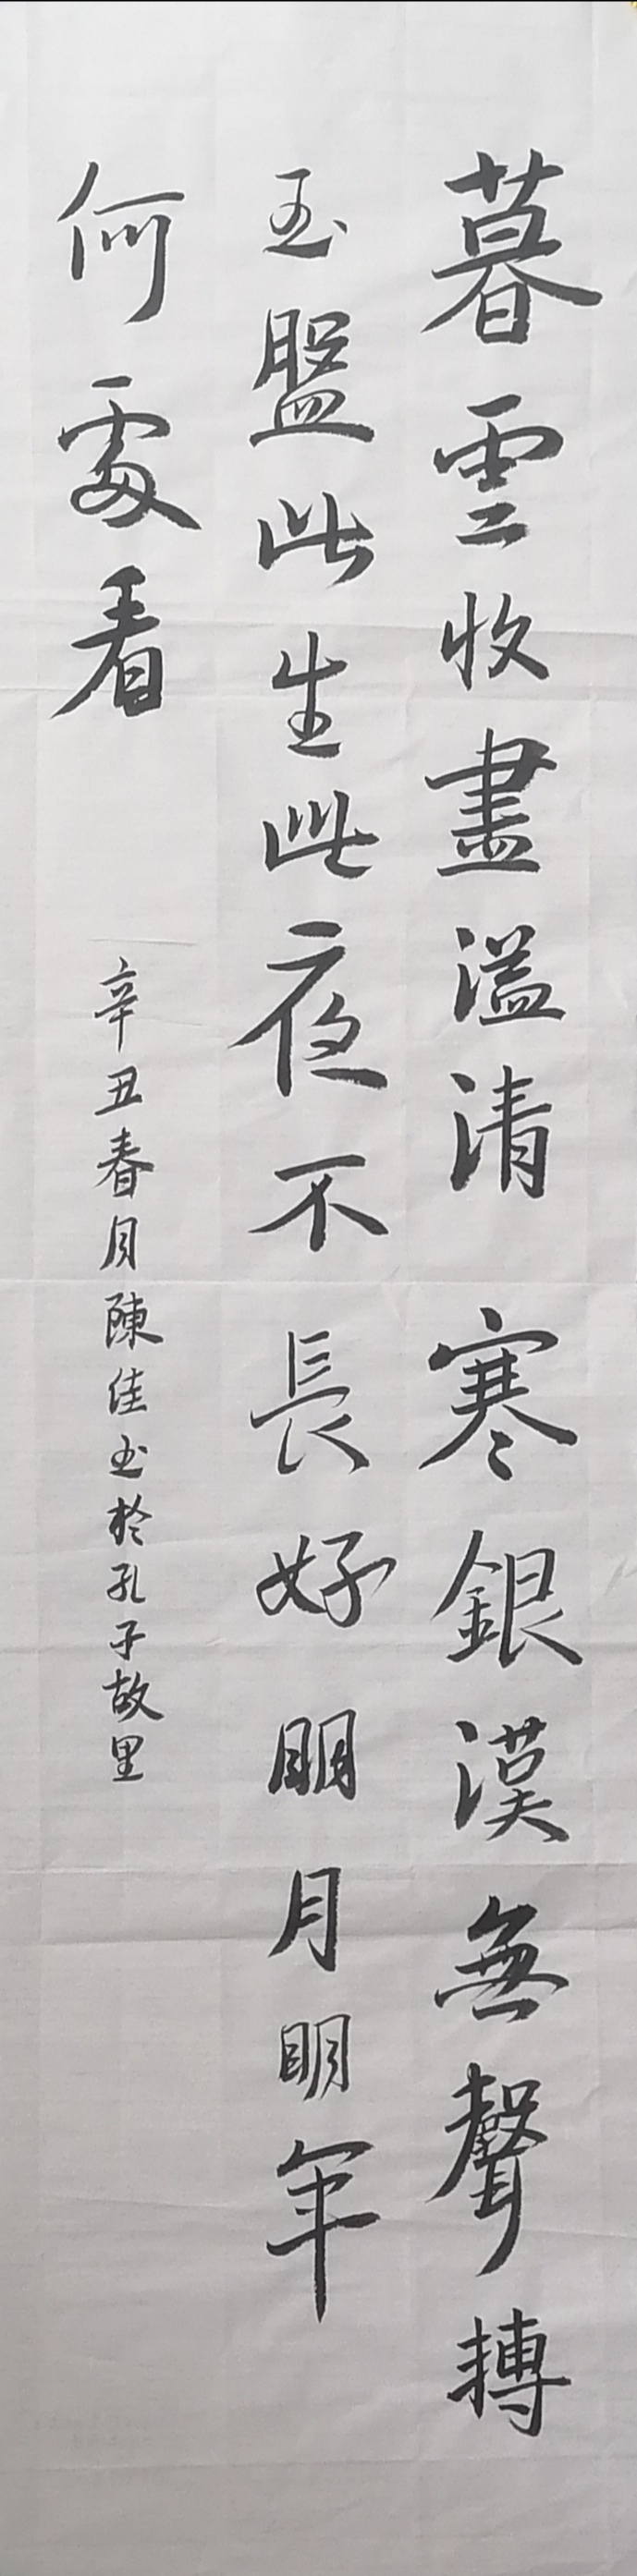 暮雲收盡溢清寒銀漢無聲摶
玉盤此生此夜不長好明月明年
何處看
辛丑春月陳佳书於孔子故里